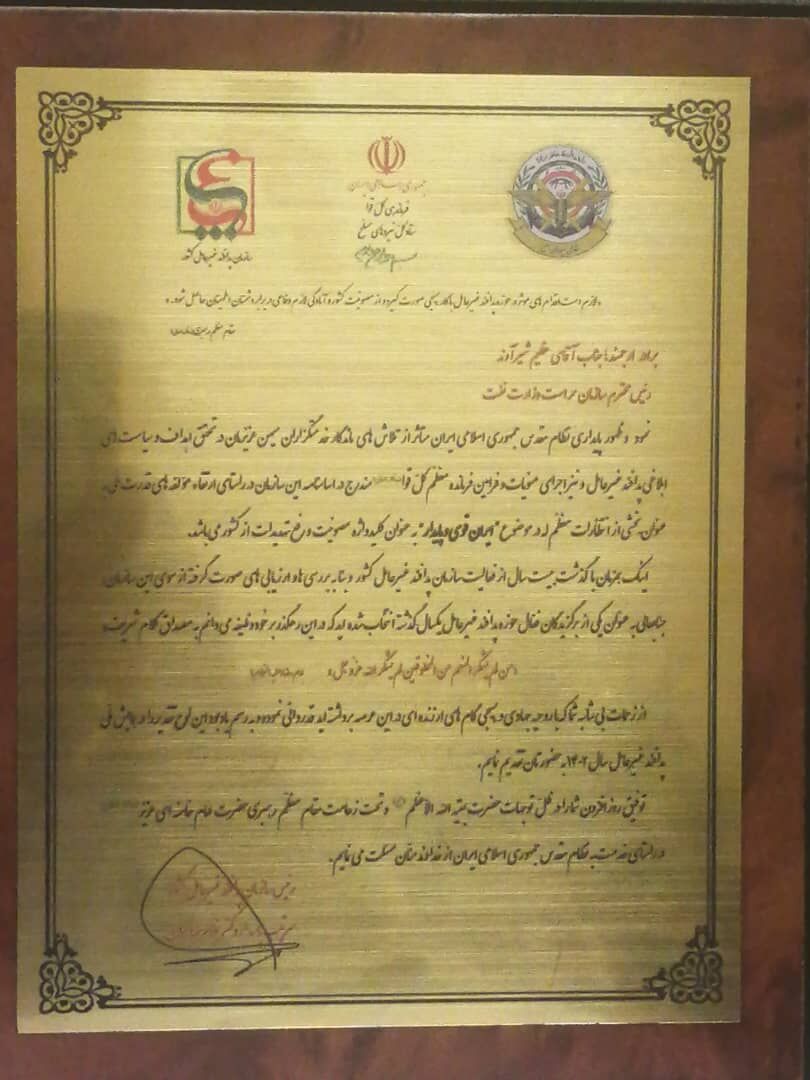 جمهوری اسلامی ایران
فرماندهی کل قوا
ستاد کل نیروهای مسلح
سازمان پدافند غیرعامل کشور
لازم است اقدام های موثر در حوزه پدافند غیرعامل با کار بسیجی صورت گیرد و از مصونیت کشور و آمادگی لازم دفاعی در برابر دشمنان اطمینان حاصل شود.
مقام معظم رهبری
برادر ارجمند جناب آقای عظیم شیرآوند
رئیس محترم سازمان حراست وزارت نفت
نمود و ظهور پایداری نظام مقدس جمهوری اسلامی ایران متأثر از تلاش های ماندگار خدمتگزاران میهن عزیزمان در تحقق اهداف و سیاست های
ابلاغی پدافند غیرعامل و نیز اجرای منویات و فرامین فرمانده معظم کل قوا مندرج در اساسنامه این سازمان در راستای ارتقاء مؤلفه های قدرت ملی،
بخشی از انتظارات معظم له در موضوع "ایران قوی و پایدار" به عنوان کلیدواژه مصونیت و رفع تهدیدات از کشور می باشد.
اینک همزمان با گذشت بیست سال از فعالیت سازمان پدافند غیرعامل کشور و بنا به بررسی ها و ارزیابی های صورت گرفته از سوی این سازمان،
جنابعالی به عنوان یکی از برگزیدگان فعال حوزه پدافند غیرعامل یکسال گذشته انتخاب شده اید که در این رهگذر بر خود وظیفه می دانم به مصداق کلام شریف
من لم یشکر المنعم من المخلوقین لم یشکر الله عزوجل
از زحمات بی شائبه شما که با روحیه جهادی و بسیجی گام های ارزنده ای در این عرصه برداشته اید قدردانی نموده و به رسم یادبود این لوح تقدیر را در همایش ملی
پدافند غیرعامل سال ۱۴۰۲ به حضورتان تقدیم نمایم.
توفیق روزافزون شما را در ظل توجهات حضرت بقیه الله الاعظم و تحت زعامت مقام معظم رهبری حضرت امام خامنه ای عزیز
در راستای خدمت به نظام مقدس جمهوری اسلامی ایران از خداوند منان مسئلت می نمایم.
رئیس سازمان پدافند غیرعامل کشور